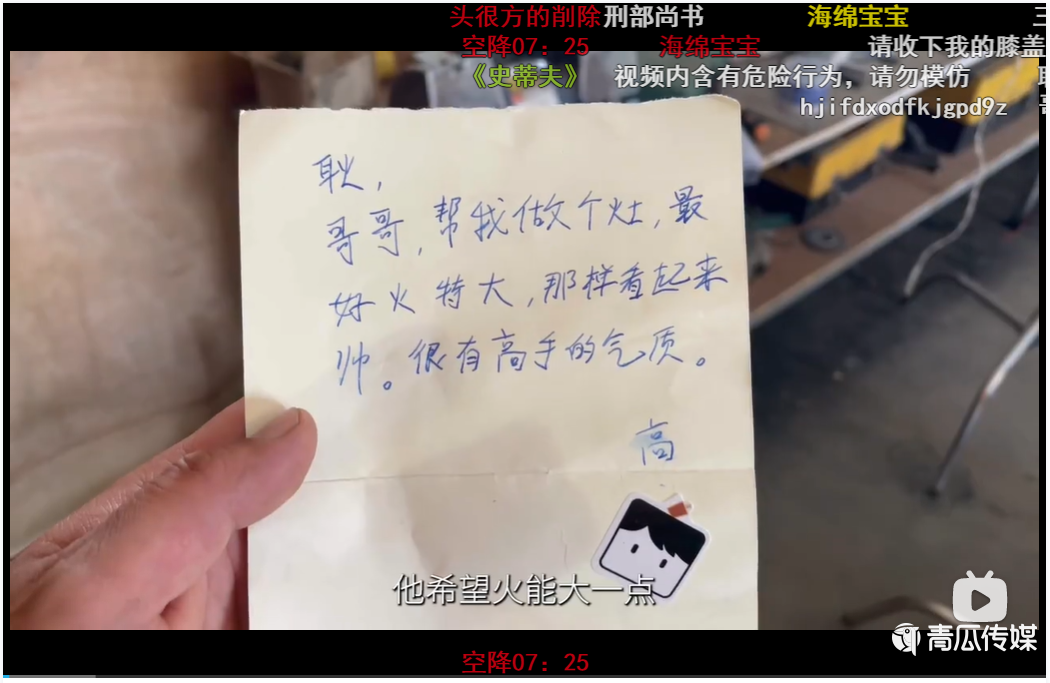 头很方的削除 刑部尚书 海绵宝宝 三
空降07：25 海绵宝宝 请收下我的膝盖
《史蒂夫》 视频内含有危险行为，请勿模仿
hjifdxodfkjgpd9z
耿，
哥哥，帮我做个灶，最
好火特大，那样看起来
帅。很有高手的气质。
高
他希望火能大一点
青瓜传媒
空降07：25